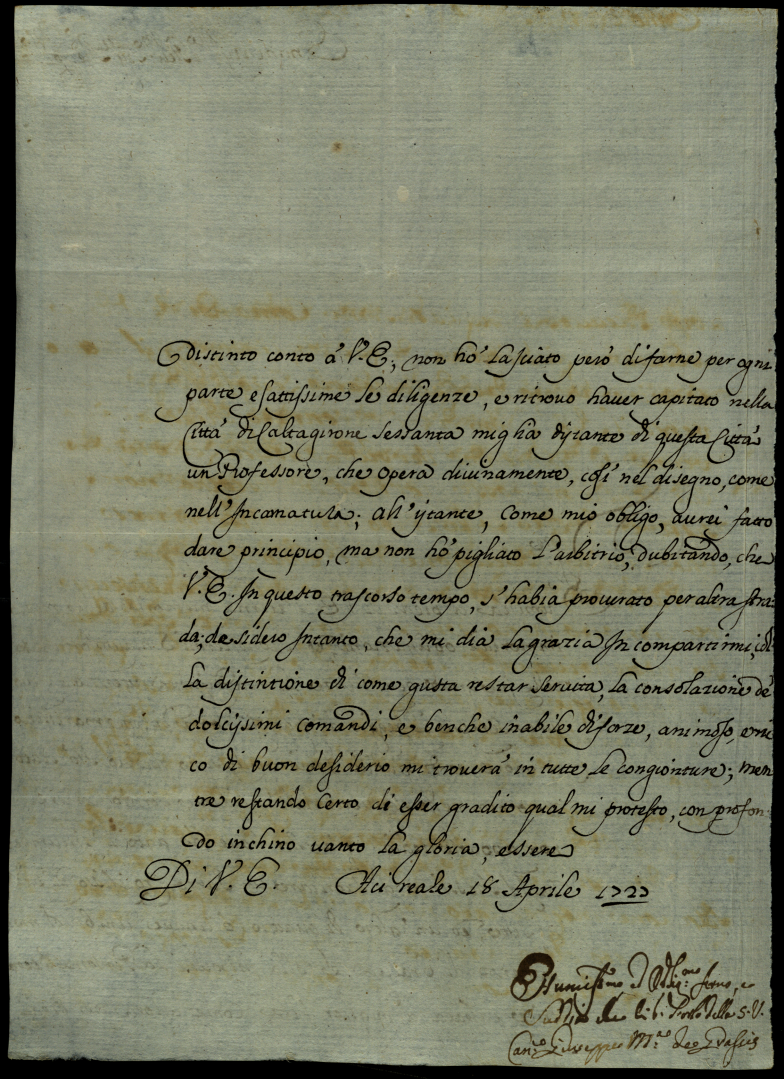 distinto conto à V. E., non hò lasciato però di farne per ogni
parte esattissime le diligenze, e ritrovo haver capitato nella
Città di Caltagirone sessanta miglia distante di questa Città
un Professore, che opera divinamente, così nel disegno, come
nell'Incarnatura; all'istante, come mio obligo, aurei fatto
dare principio, ma non hò pigliato l'arbitrio, dubitando, che
V. E. In questo trascorso tempo, s'habia procurato per altra stra
da; desidero Intanto, che mi dia la grazia In compartirmi, col
la distintione di come gusta restar servita, la consolazione de
dolcissimi comandi, e benche inabile di forze, animoso, e ric
co di buon desiderio mi troverà in tutte le congionture; men
tre restando certo di esser gradito qual mi protesto, con profon
do inchino vanto la gloria, essere
Di V. E. Aci reale 18 Aprile 1727
Humiss.mo ed Oblig.mo servo, e
della S. V.
Can.co Giuseppe M.a